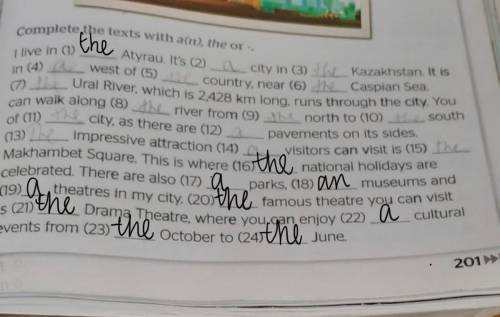 Complete the texts with a(n), the or -.
I live in (1) the Atyrau. It's (2) a city in (3) the Kazakhstan. It is
in (4) a west of (5) the country, near (6) the Caspian Sea.
(7) the Ural River, which is 2,428 km long, runs through the city. You
can walk along (8) the river from (9) the north to (10) the south
of (11) the city, as there are (12) a pavements on its sides.
(13) the impressive attraction (14) a visitors can visit is (15) the
Makhambet Square. This is where (16) the national holidays are
celebrated. There are also (17) a parks, (18) an museums and
(19) a theatres in my city. (20) the famous theatre you can visit
s (21) the Drama Theatre, where you can enjoy (22) a cultural
events from (23) the October to (24) the June.
201